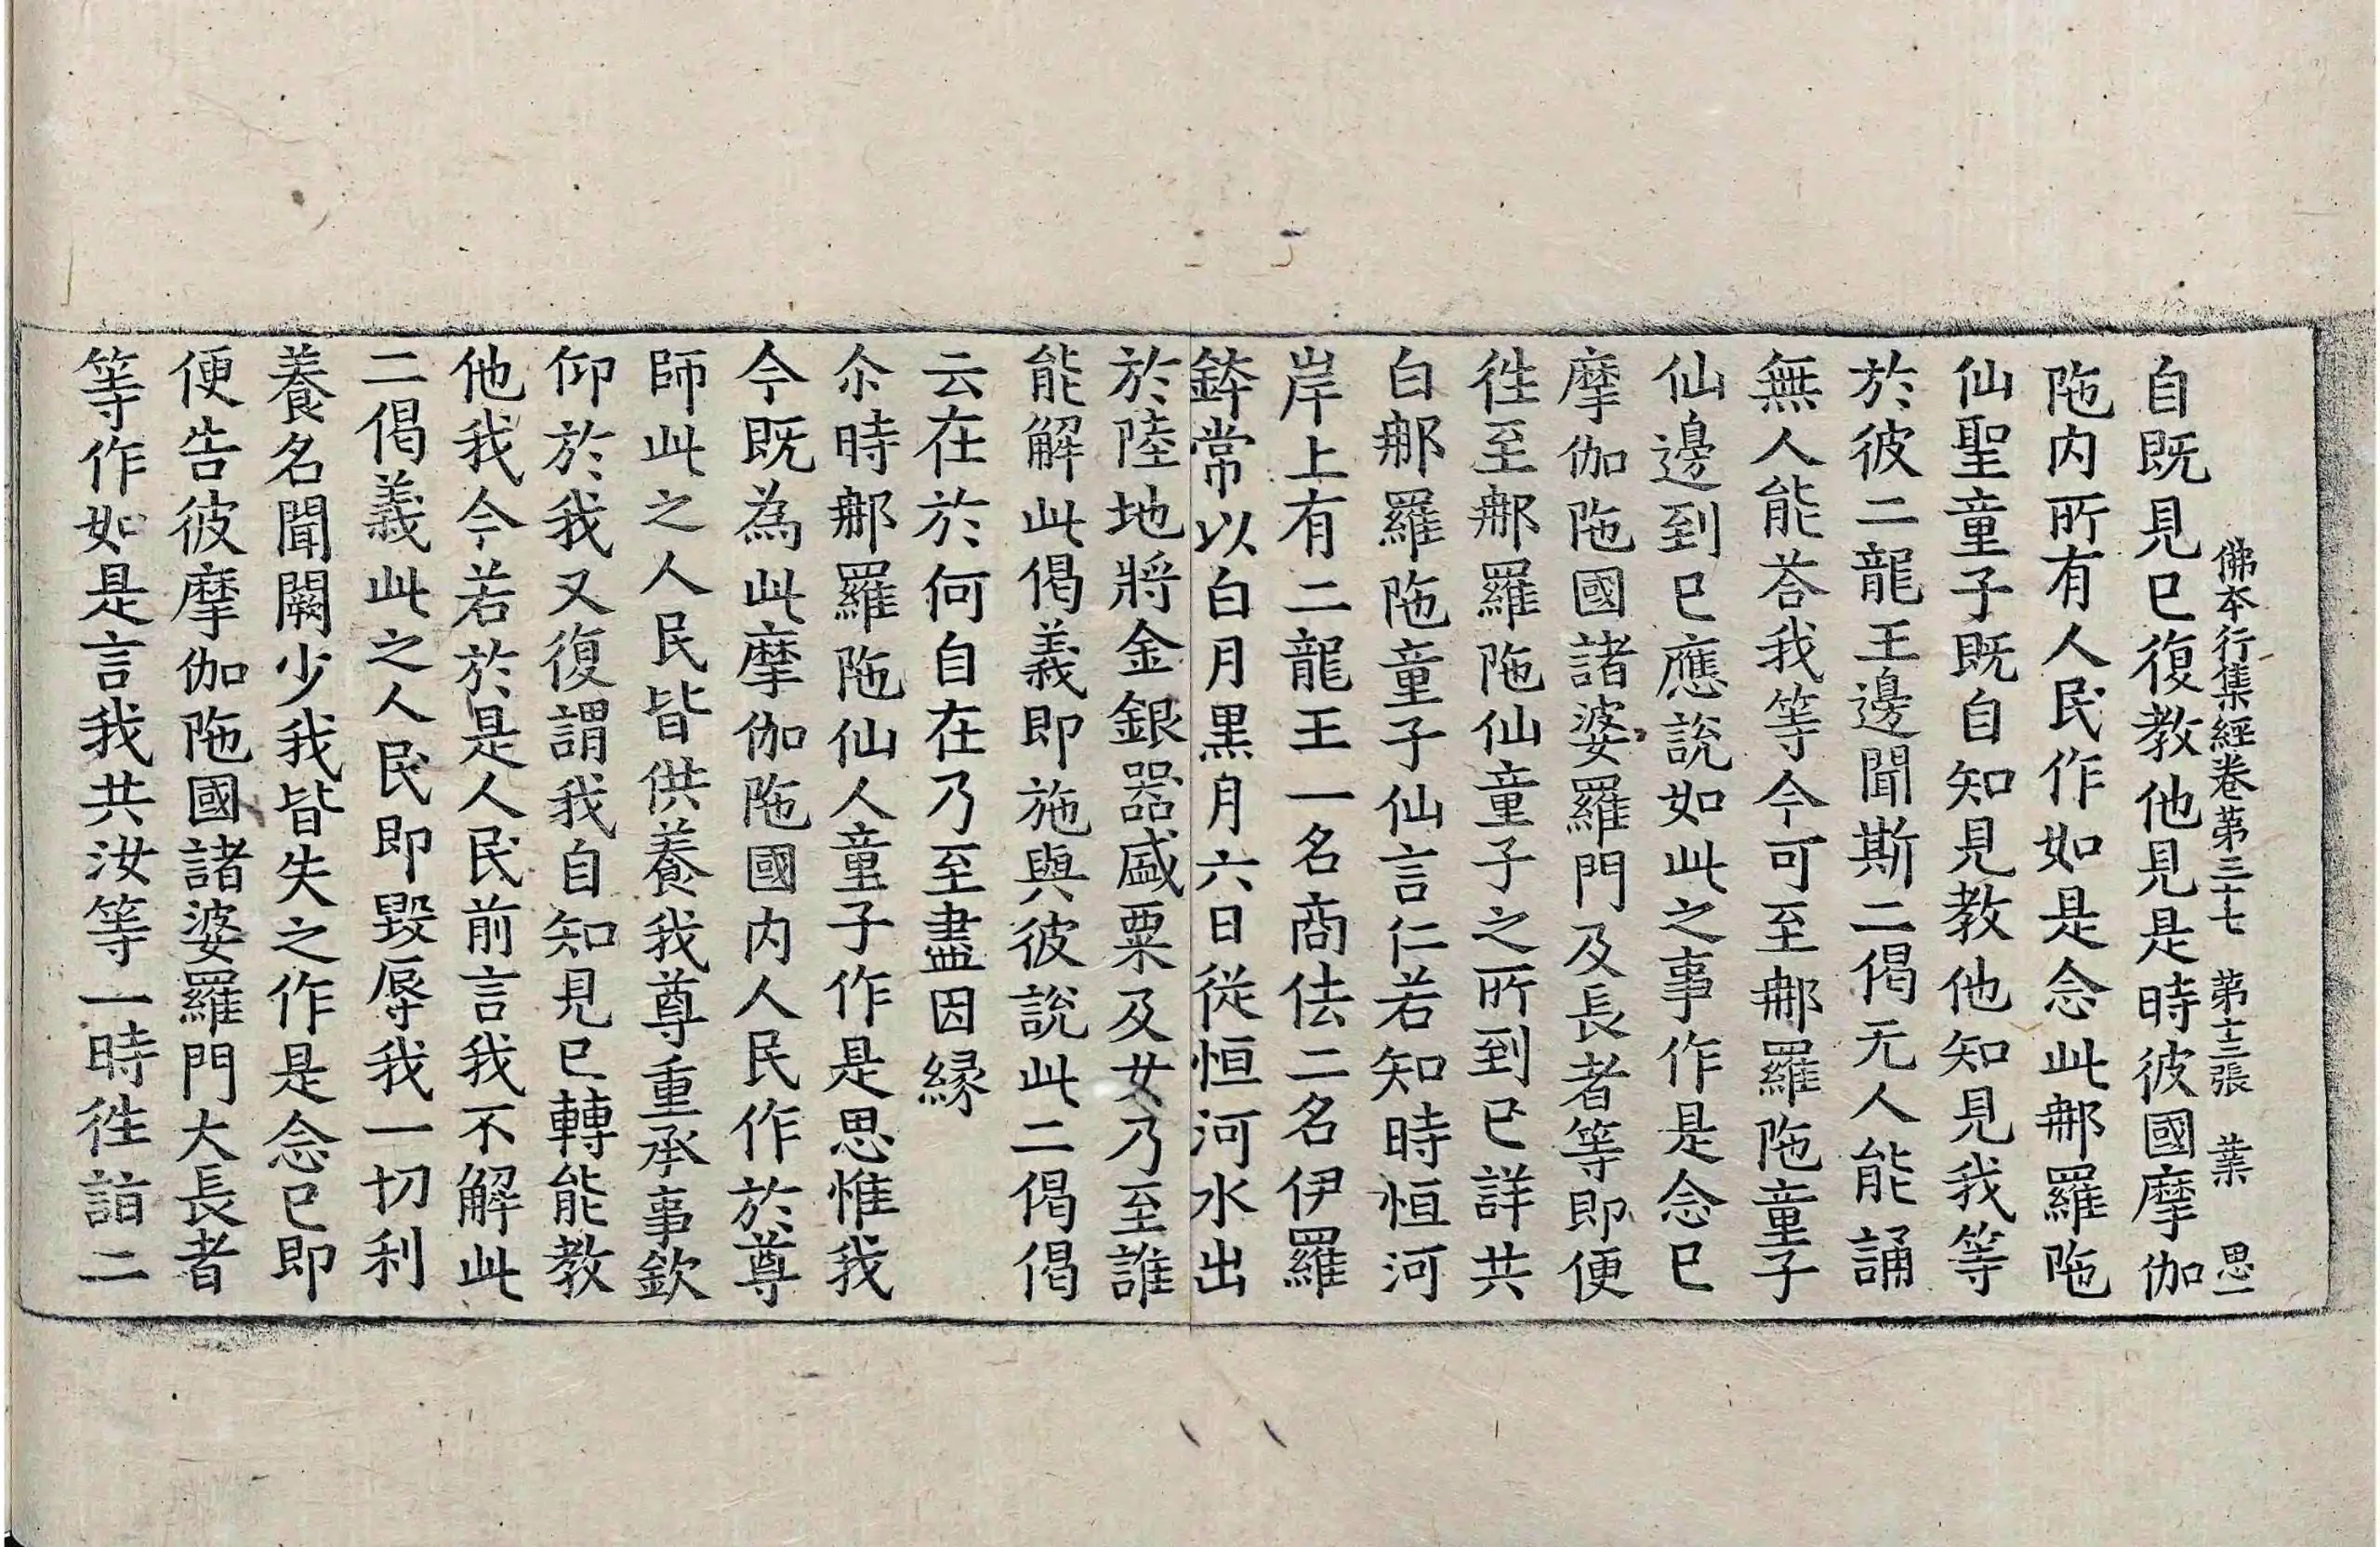 佛本行集經卷第三十七 第十三張 業 思一
自既見已復教他見是時彼國摩伽
陁内所有人民作如是念此郍羅陁
仙聖童子既自知見教他知見我等
於彼二龍王邊聞斯二偈无人能誦
無人能荅我等今可至郍羅陁童子
仙邊到已應說如此之事作是念已
摩伽陁國諸婆羅門及長者等即便
徃至郍羅陁仙童子之所到已詳共
白郍羅陁童子仙言仁若知時恒河
岸上有二龍王一名商佉二名伊羅
鉢常以白月黒月六日從恒河水出
於陸地將金銀器盛粟及女乃至誰
能解此偈義即施與彼說此二偈偈
云在於何自在乃至盡因縁
尒時郍羅陁仙人童子作是思惟我
今既為此摩伽陁國内人民作於尊
師此之人民皆供養我尊重承事欽
仰於我又復謂我自知見已轉能教
他我今若於是人民前言我不解此
二偈義此之人民即毀辱我一切利
養名聞闕少我皆失之作是念已即
便告彼摩伽陁國諸婆羅門大長者
等作如是言我共汝等一時徃詣二